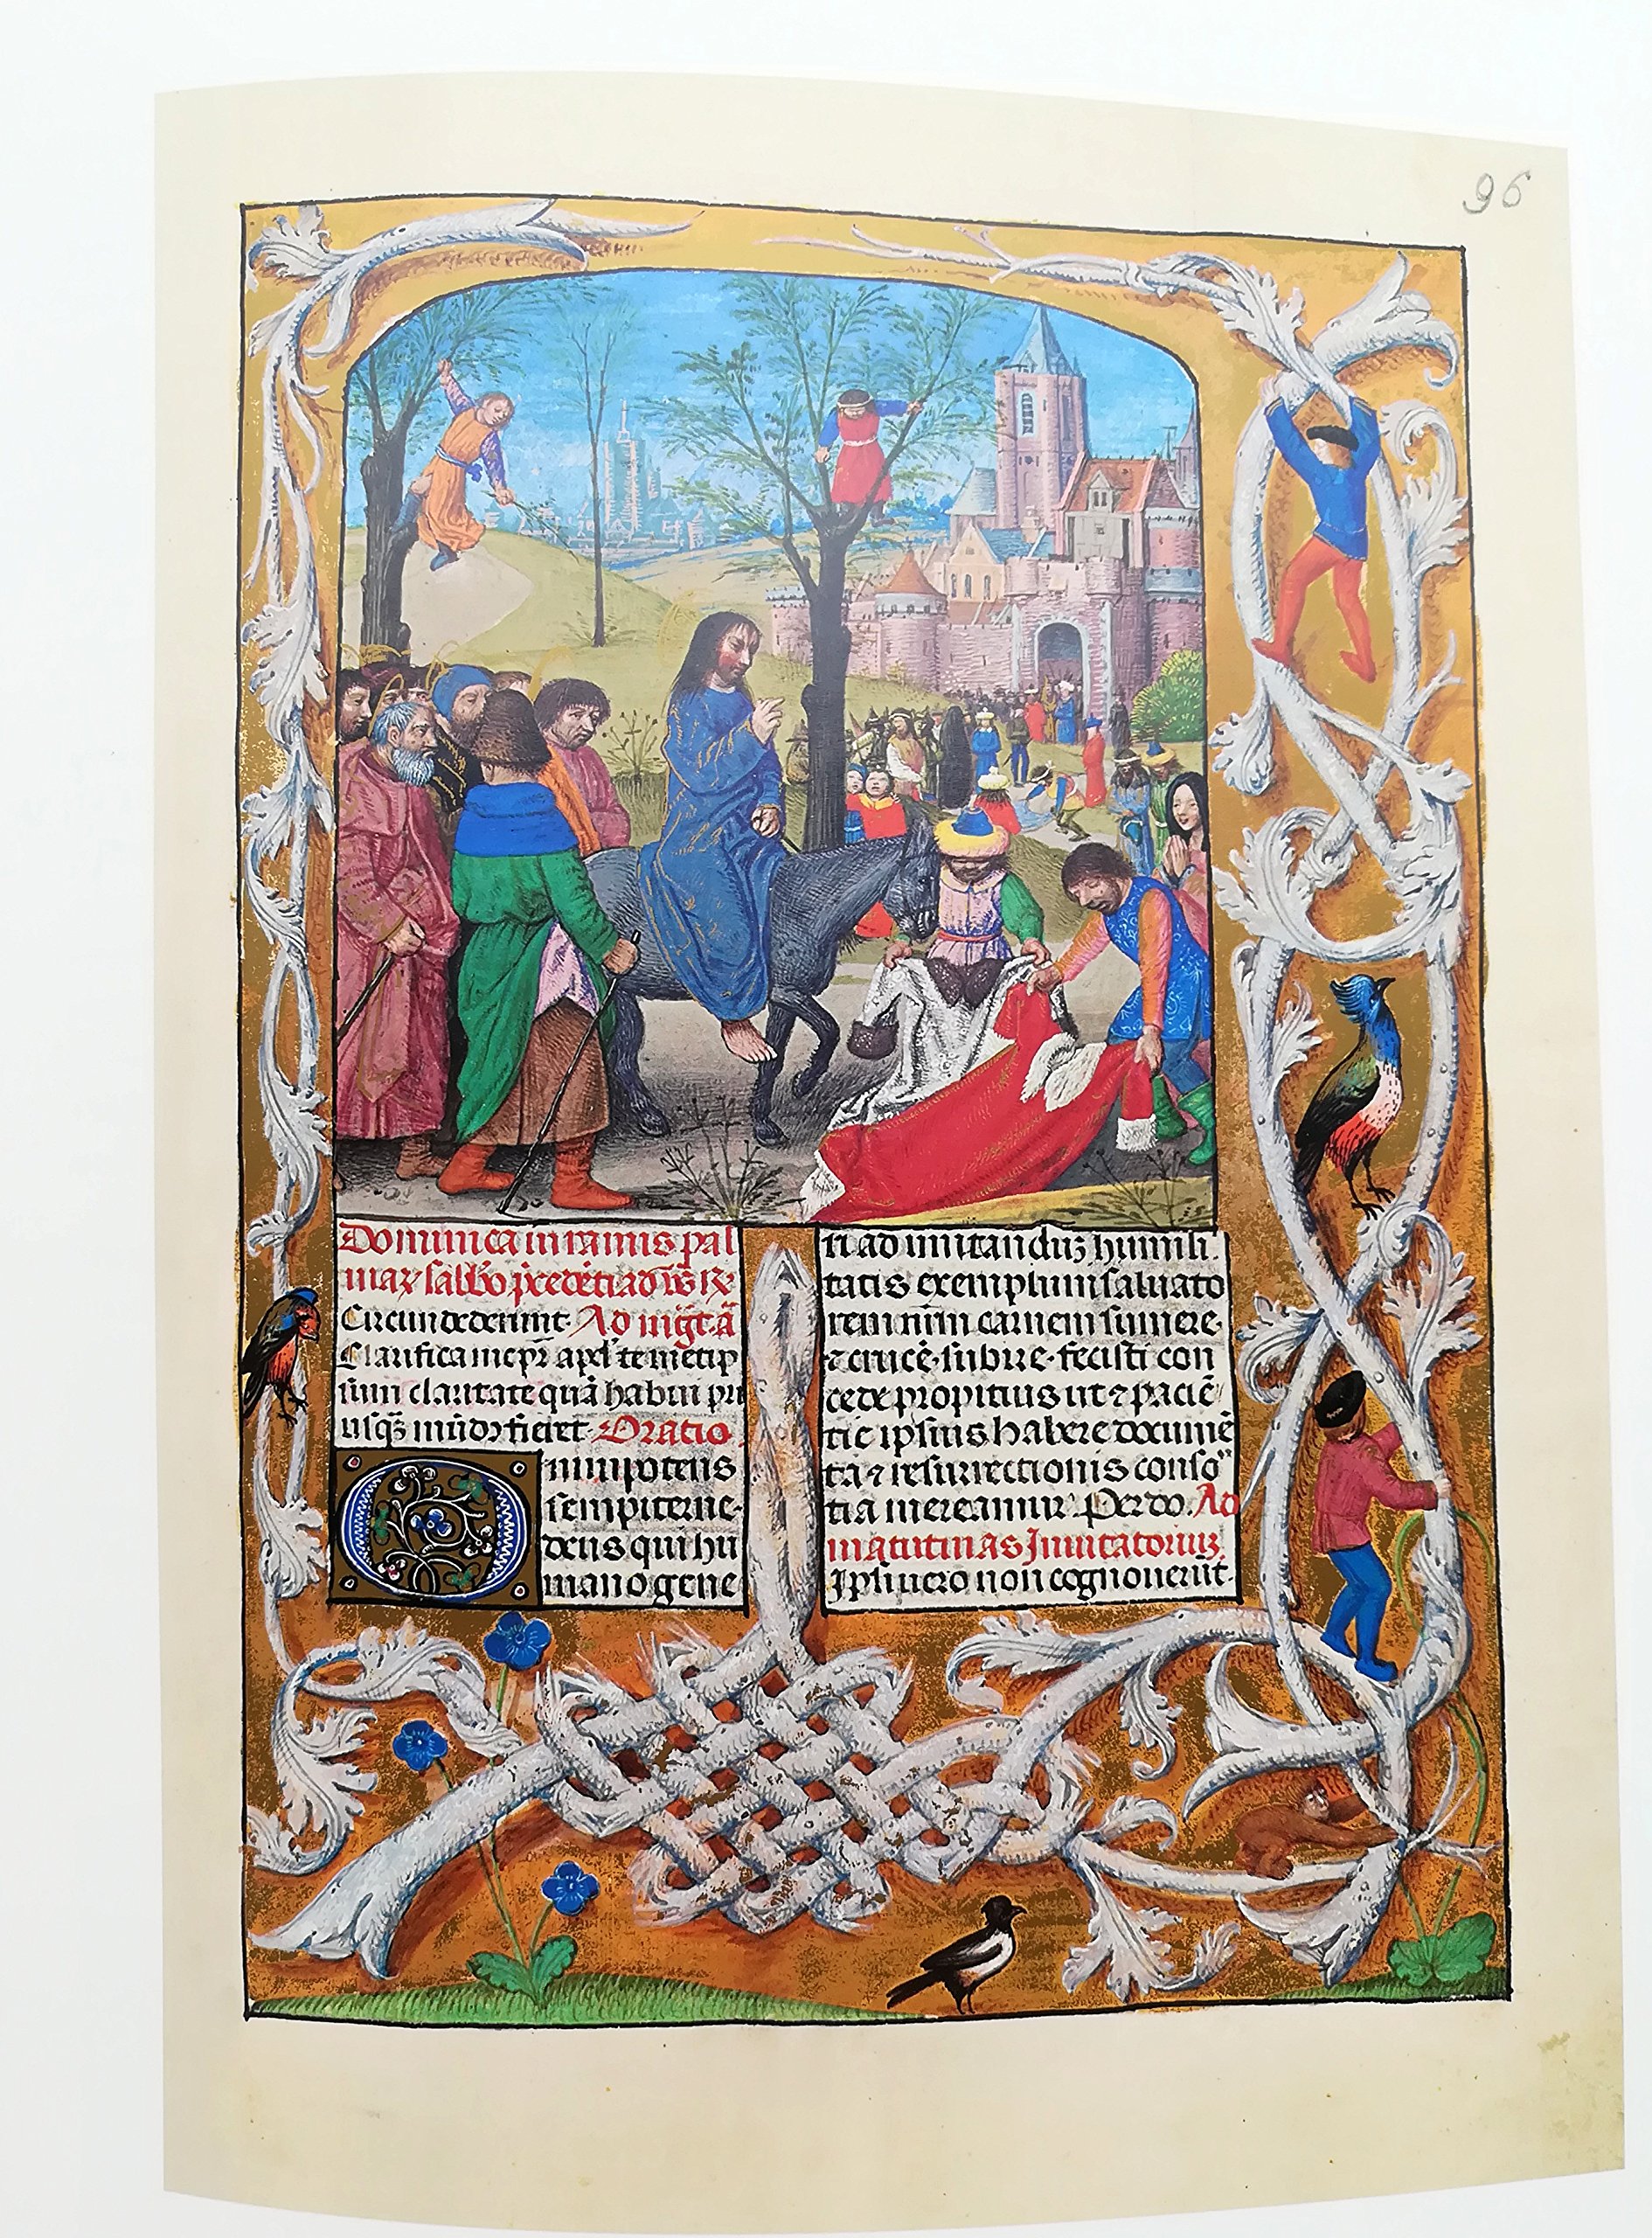 96
Dominica in ramis pal
marꝝ sabb̄o p̄cedēti ad vs̄ Rꝫ
Circumdederunt. Ad mg̅t. ā
Clarifica me pr̄ apd̕ temetip
sum claritate quā habui pri
usq̄ mūdꝰ fieret. Oratio
Omnipotens
sempiterne
deus qui hu
mano gene
ri ad imitanduꝫ humili
tatis exemplum saluato
rem nr̄m carnem sumere.
⁊ crucē. subire. fecisti con
cede propitius ut ⁊ paciē
tie ipsius habere documē
ta ⁊ resurrectionis conso
tia mereamur. Per do. Ad
matutinas Inuitatoriuꝫ.
Ipsi uero non cognouerūt.